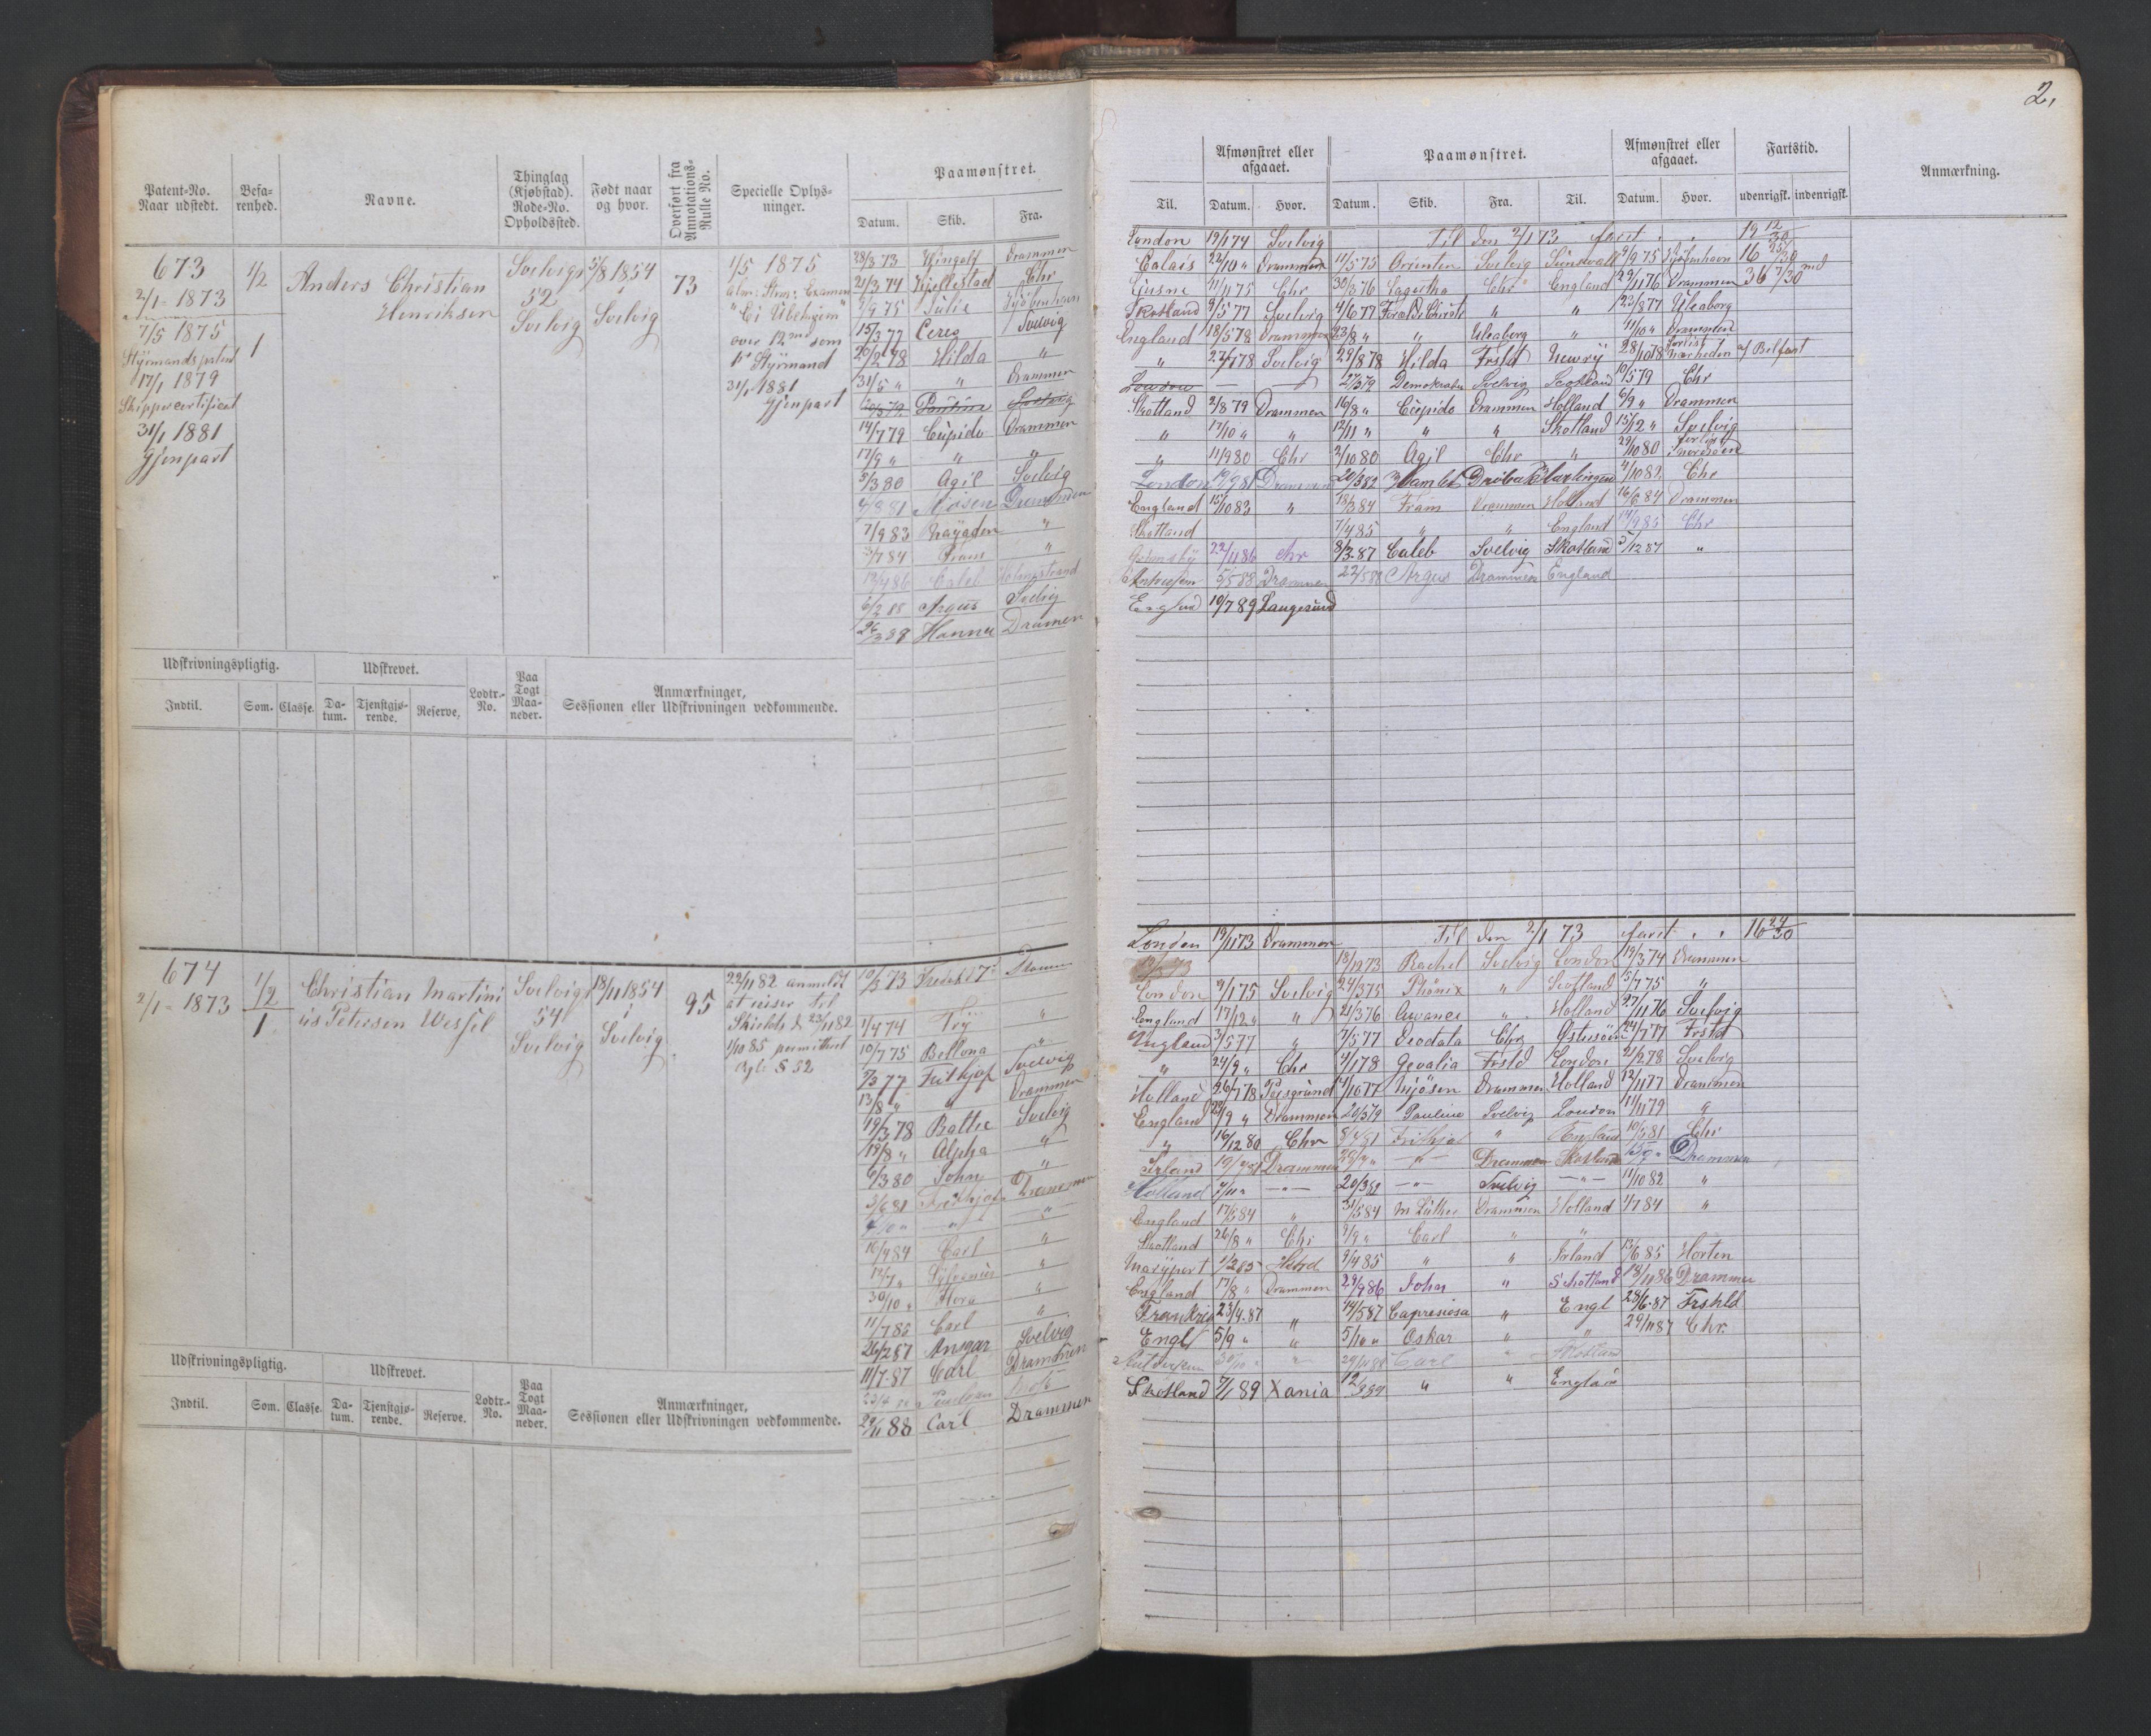 2,
Patent-No. Naar udstedt.
Befa-renhed.
Navne.
Thinglag (Kjøbstad). Rode-No. Opholdssted.
Født naar og hvor.
Overført fra Annotations-Rulle No.
Specielle Oplys-ninger.
Paamønstret.
Datum. Skib. Fra.
673
2/1 - 1873
7/5 1875
Styrmandspatent
17/1 1879
Skippercertificat
31/1 1881
Gjenpart
1/2
1
Anders Christian
Henriksen
Svelvig
52
Svelvig
5/8 1854
i
Svelvig
73
1/5 1875
over 12 md som
Styrmand
31/1 1881
Gjenpart
28/3 73 Hingolf Drammen
21/3 74 Kjellestad Chr
9/9 75 Julie Kjøbenhavn
15/3 77 Ceres Svelvig
20/2 78 Hilda "
31/5 " " Drammen
Pauline Svelvig
14/7 79 Cupido Drammen
17/9 " " "
5/3 80 Agil Svelvig
Mjøsen Drammen
7/9 83 Nayaden "
3/7 84 Fram "
Caleb Holmestrand
6/2 88 Argus Svelvig
26/3 89 Hanna Drammen
Udskrivningspligtig.
Udskrevet.
Indtil. Som. Classe. Da-tum. Tjenstgjø-rende. Reserve. Lodtr.-No. Paa Togt Maa-neder.
Anmærkninger,
Sessionen eller Udskrivningen vedkommende.
674
2/1 - 1873
1/2
1
Christian Martini
us Petersen Wessel
Svelvig
54
Svelvig
18/11 1854
i
Svelvig
95
22/11 82 anmeldt
at reiser til
1/10 85 permitteret
§ 52
10/5 73
1/4 74 Try "
10/7 75 Bellona "
7/3 77 Frithjof Svelvig
13/8 " " Drammen
19/3 78 Bathe Svelvig
19/8 " Alpha "
6/3 80 John "
3/6 81 Frithjof Drammen
16/4 84 Carl "
14/7 " Sylvanus "
30/10 " Flora "
11/7 85 Carl "
26/2 87 Ansgar Svelvig
11/7 87 Carl Drammen
29/11 88 Carl Drammen
Udskrivningspligtig.
Udskrevet.
Indtil. Som. Classe. Da-tum. Tjenstgjø-rende. Reserve. Lodtr.-No. Paa Togt Maa-neder.
Anmærkninger,
Sessionen eller Udskrivningen vedkommende.
Afmønstret eller afgaaet.
Paamønstret.
Afmønstret eller afgaaet.
Fartstid.
Anmærkning.
Til. Datum. Hvor. Datum. Skib. Fra. Til. Datum. Hvor. udenrigsk. indenrigsk.
London 19/1 74 Svelvig Til den 2/1 73 faret " " 19 12/30
Calais 22/10 " Drammen 11/5 75 Orienten Svelvig Sundsvall 2/9 75 Kjøbenhavn 16 25/30
Ljusne 11/11 75 Chr 30/3 76 Lagertha Chr England 29/11 76 Drammen 36 7/30 md
Skotland 9/5 77 Svelvig 4/6 77 " " 23/8 77 Uleaborg
England 18/5 78 Drammen 23/8 " " Uleaborg " 11/10 " Drammen
" 22/7 78 Svelvig 29/8 78 Hilda Frstd Newry 28/10 78 forlist nærheden af Belfast
London — — 27/3 79 Demokraten Svelvig Scotland 10/5 79 Chr
Skotland 2/8 79 Drammen 16/8 " Cupido Drammen Holland 6/9 " Drammen
" 17/10 " " 12/11 " " " Skotland 15/12 " Svelvig
" 11/9 80 Chr 2/10 80 Agil Chr " 29/10 80 forlist Nordsøen
London 19/9 81 Drammen 20/3 82 Hamlet Drøbak Harlingen 4/10 82 Chr
England 15/10 83 " 18/3 84 Fram Drammen Holland 16/6 84 Drammen
Skotland 7/4 85 " " England 14/9 85 Chr
Grimsby 22/11 86 Chr 8/3 87 Caleb Svelvig Skotland 5/12 87 "
Antwerpen 5/5 88 Drammen 22/5 88 Argus Drammen England
England 10/7 89 Langesund
London 19/11 73 Drammen Til den 2/1 73 faret " " 16 24/30
18/12 73 Rachel Svelvig London 19/3 74 Drammen
London 9/1 75 Svelvig 24/3 75 Phønix " Scotland 5/7 75 "
England 17/12 " " 21/3 76 Avance " Holland 27/11 76 Svelvig
England 3/5 77 " 7/5 77 Deodata Chr Østersøen 24/7 77 Frstd
" 24/9 " Chr 4/1 78 Gevalia Frstd London 21/2 78 Svelvig
Holland 26/7 78 Porsgrund 4/10 77 Mjøsen Drammen Holland 12/11 77 Drammen
England 23/9 " Drammen 20/3 79 Pauline Svelvig London 11/11 79 "
" 16/12 80 Chr Frithjof " England 10/5 81 Chr
Irland Drammen " Drammen Skotland Drammen
Holland 7/11 " — " — 20/3 82 — " — Svelvig — " — 11/10 82 "
England 17/5 84 " 31/5 84 M Luther Drammen Holland 1/7 84 "
Skotland 26/8 " Chr 9/9 " Carl " "
Marÿport 1/2 85 9/4 85 " " Irland 13/6 85 Horten
England 17/8 " Drammen 29/9 86 John " Schotland 18/11 86 Drammen
Frankrig 23/4 87 " 14/5 87 Capresiosa " Engl 28/6 87 Frshld
Engl 5/9 " " 5/10 " Oskar " " 29/11 87 Chr.
Carl "
Skotland 7/1 89 Xania 12/3 89 " " England